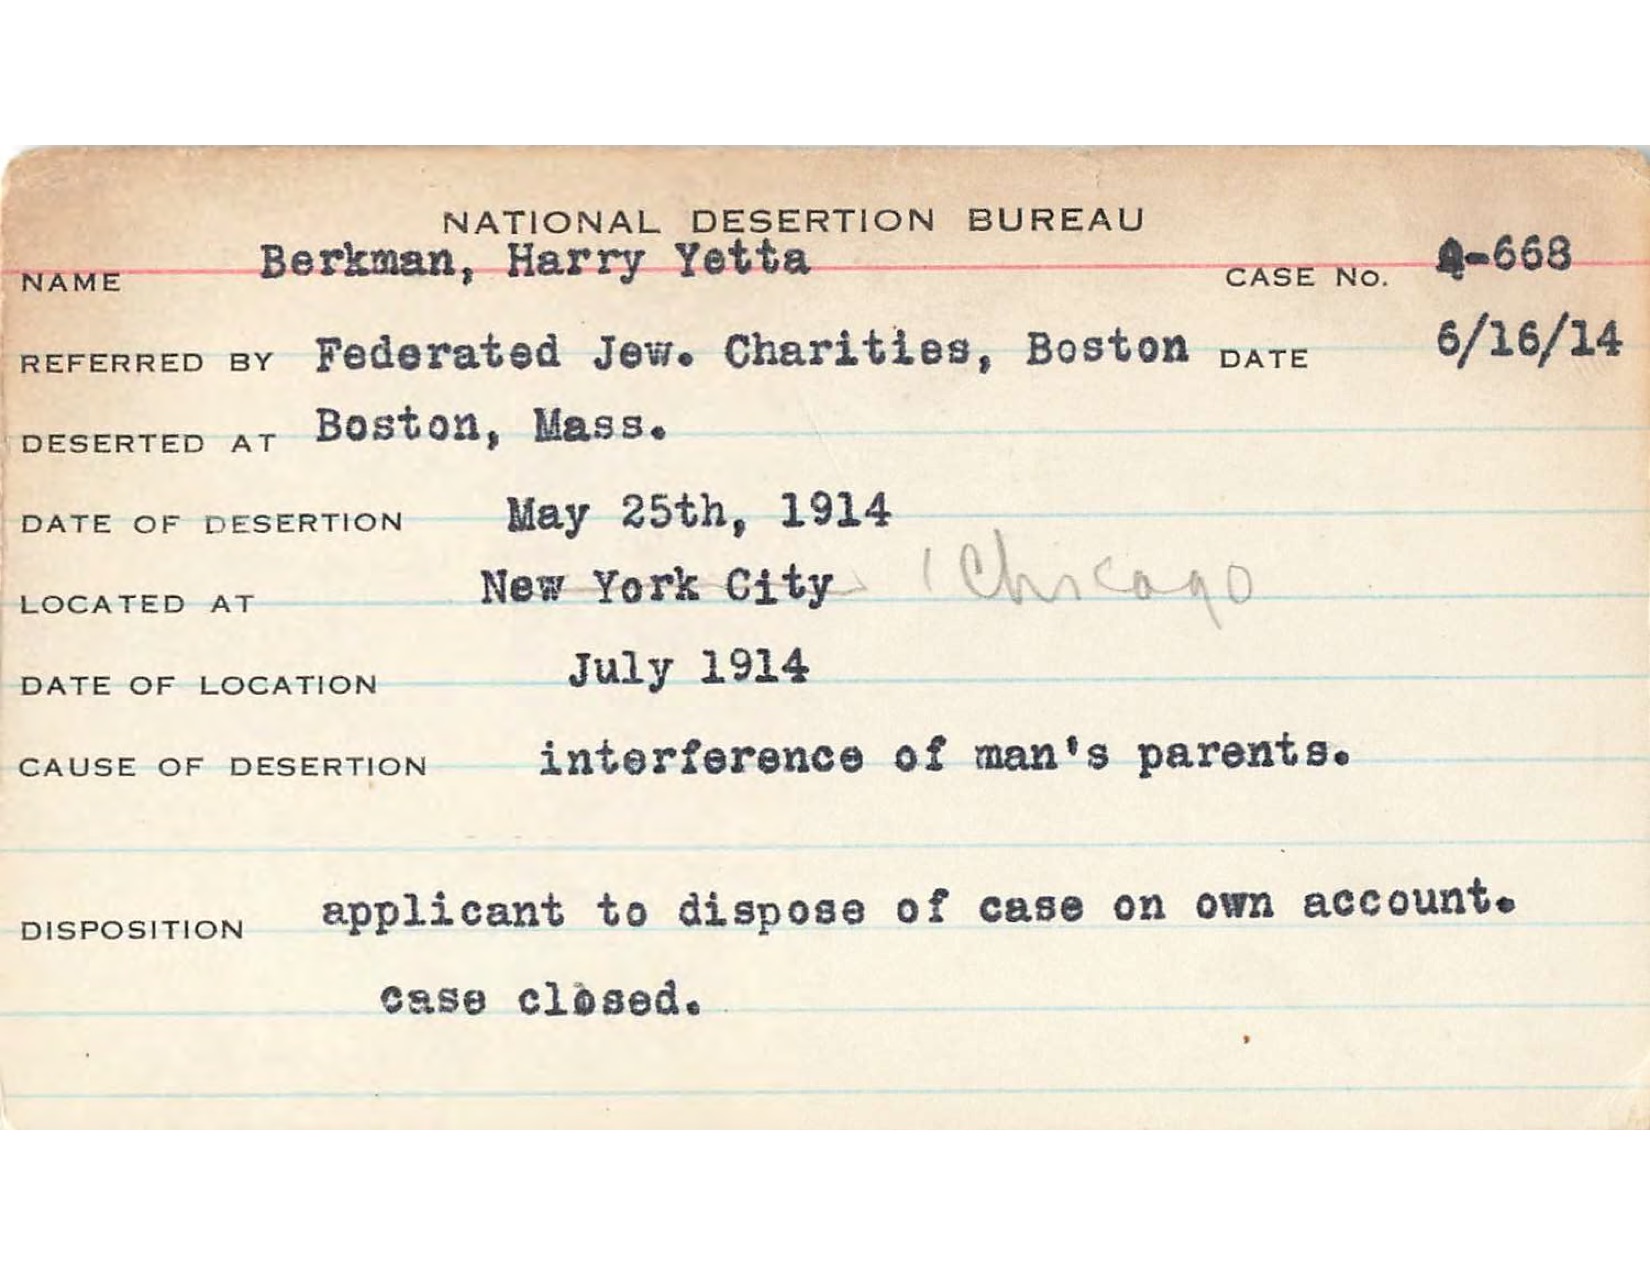 NATIONAL DESERTION BUREAU
NAME Berkman, Harry Yetta CASE No. A-668
REFERRED BY Federated Jew. Charities, Boston DATE 6/16/14
DESERTED AT Boston, Mass.
DATE OF DESERTION May 25th, 1914
LOCATED AT New York City Chicago
DATE OF LOCATION July 1914
CAUSE OF DESERTION interference of man's parents.
DISPOSITION applicant to dispose of case on own account.
case closed.